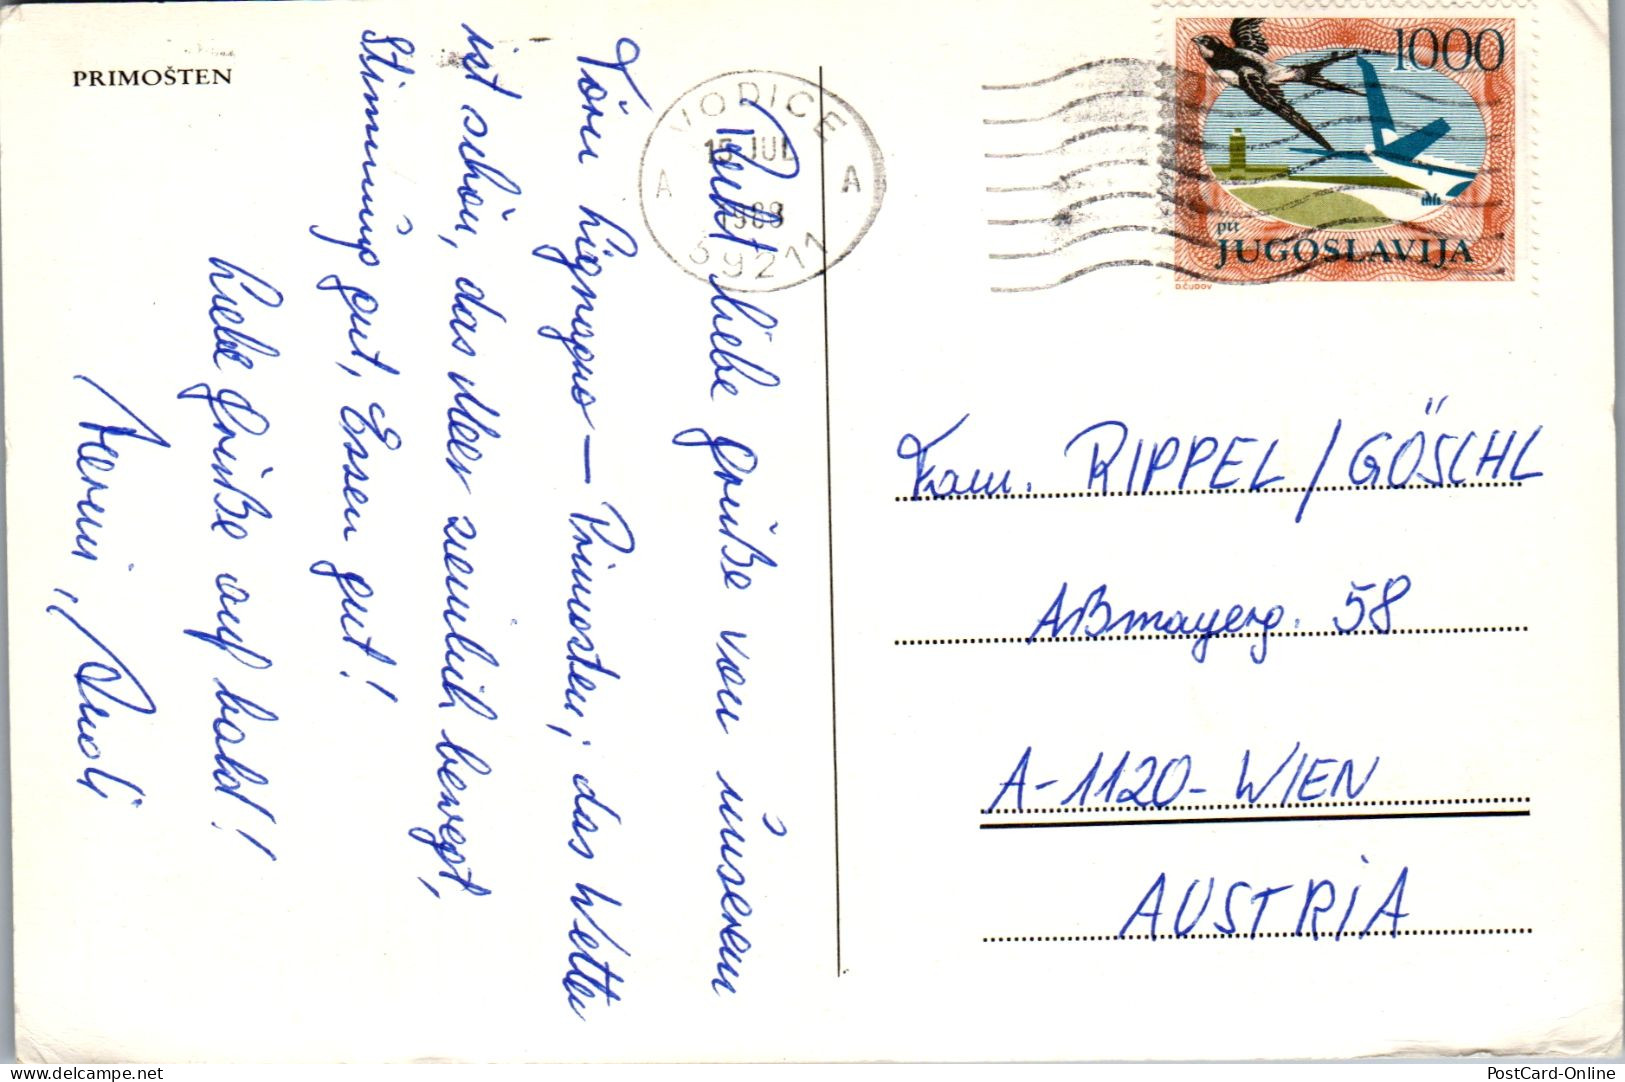 PRIMOŠTEN
VODICE
15 JUL
1988
59211
A A
1000
ptt
JUGOSLAVIJA
D.ČUDOV
Recht liebe Grüße von unserem
Törn Lignano – Primosten; das Wetter
ist schön, das Meer ziemlich bewegt,
Stimmung gut, Essen gut!
Liebe Grüße auf bald!
Hermi, Rudi
Fam. RIPPEL/GÖSCHL
Aßmayerg. 58
A-1120-WIEN
AUSTRIA
PostCard-Online